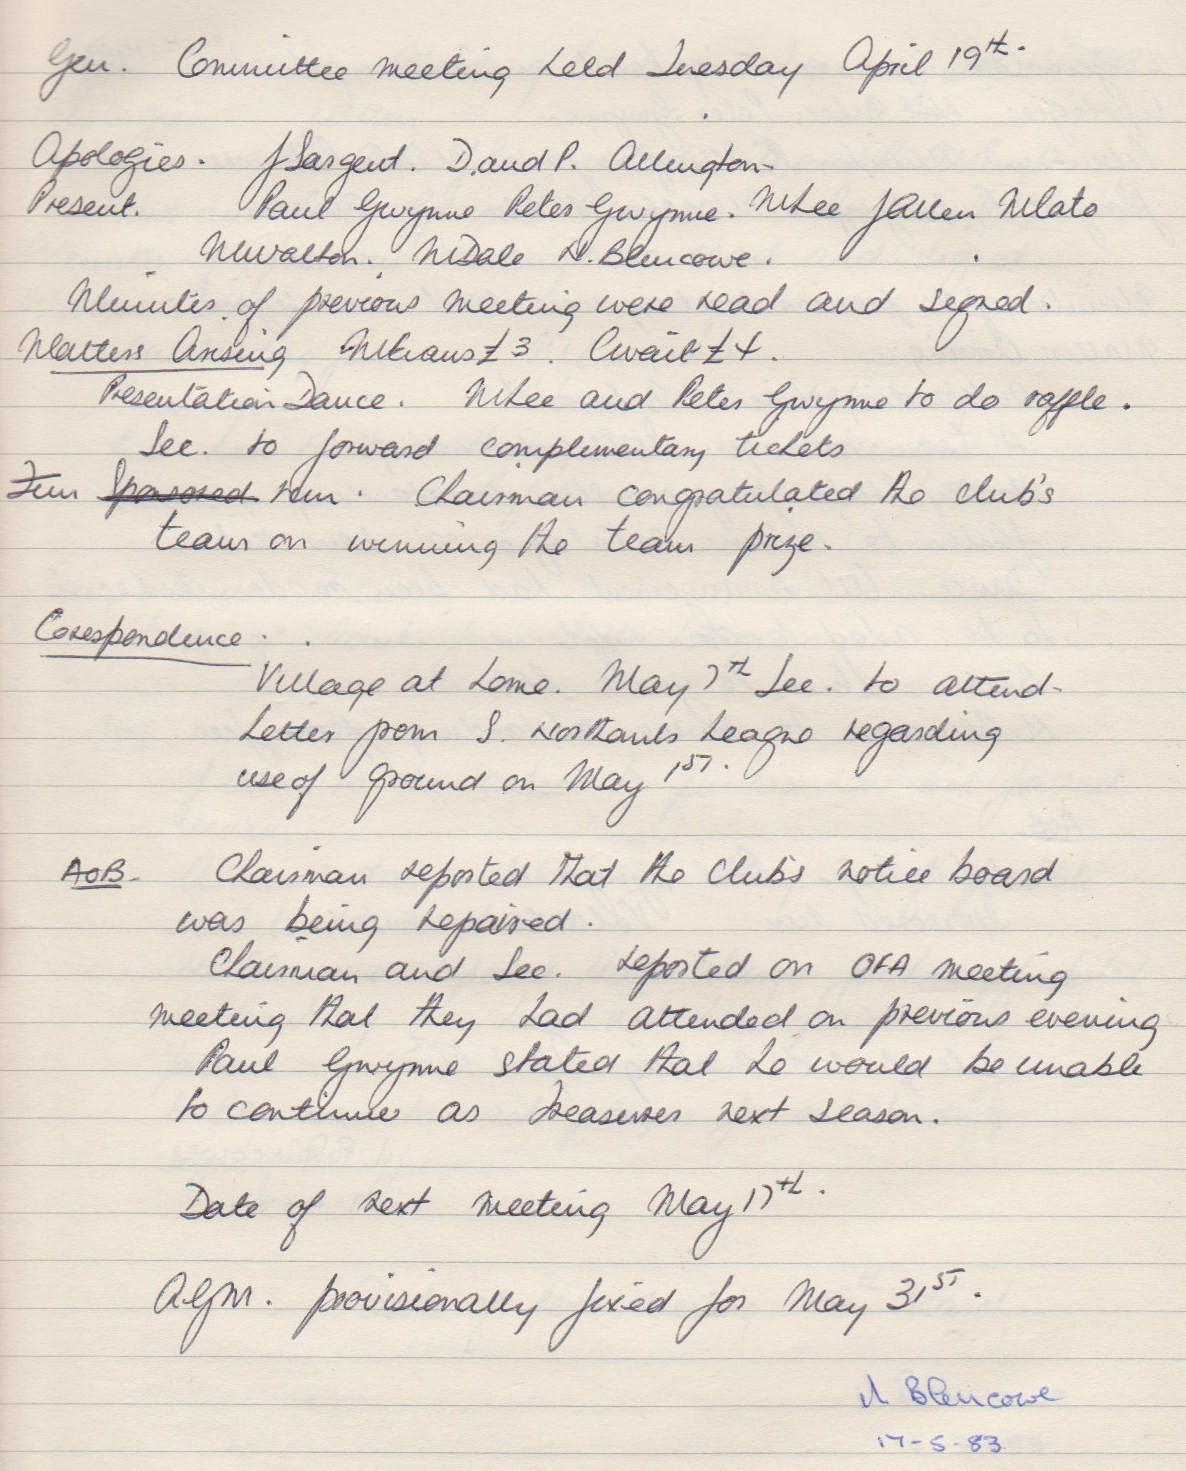 Gen. Committee meeting held Tuesday April 19th.
Apologies. J Sargent. D. and P. Allington
Present. Paul Gwynne Peter Gwynne. M Lee J Allen M Lato
M Walton. M Dale N. Blencowe.
Minutes of previous meeting were read and signed.
Matters Arising M Evans £3. C Wait £4.
Presentation Dance. M Lee and Peter Gwynne to do raffle.
Sec. to forward complementary tickets
Fun Sponsored run. Chairman congratulated the club's
team on winning the team prize.
Corespondence.
Village at home. May 7th Sec. to attend.
Letter from S. Northants League regarding
use of ground on May 1st.
AOB. Chairman reported that the Club's notice board
was being repaired.
Chairman and Sec. reported on OFA meeting
meeting that they had attended on previous evening
Paul Gwynne stated that he would be unable
to continue as Treasurer next season.
Date of next meeting May 17th.
A.G.M. provisionally fixed for May 31st.
N Blencowe
17-5-83